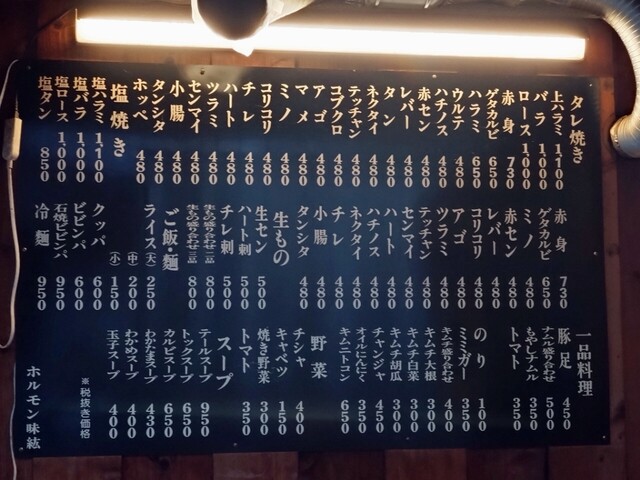 タレ焼き
上ハラミ 1,100
バラ 1,000
ロース 1,000
赤身 730
ゲタカルビ 650
ハラミ 650
ウルテ 480
ハチノス 480
赤セン 480
レバー 480
タン 480
ネクタイ 480
テッチャン 480
コブクロ 480
アゴ 480
マメ 480
ミノ 480
コリコリ 480
チレ 480
ハート 480
ツラミ 480
センマイ 480
小腸 480
タンシタ 480
ホッペ 480
塩焼き
塩ハラミ 1,100
塩バラ 1,000
塩ロース 1,000
塩タン 850
赤身 730
ゲタカルビ 650
ミノ 480
赤セン 480
レバー 480
コリコリ 480
アゴ 480
ツラミ 480
テッチャン 480
センマイ 480
ハート 480
ハチノス 480
ネクタイ 480
チレ 480
小腸 480
タンシタ 480
生もの
生セン 500
ハート刺 500
チレ刺 500
生もの盛り合わせ二品 800
生もの盛り合わせ三品 800
ご飯・麺
ライス(大) 250
(中) 200
(小) 150
クッパ 600
ビビンバ 600
石焼ビビンバ 950
冷麺 950
一品料理
豚足 450
ナムル盛り合わせ 500
もやしナムル 350
トマト 350
のり 100
ミミガー 350
キムチ盛り合わせ 400
キムチ大根 300
キムチ白菜 300
キムチ胡瓜 300
チャンジャ 450
オイルにんにく 350
キムニトコン 650
野菜
チシャ 400
キャベツ 150
焼き野菜 300
トマト 350
スープ
テールスープ 950
トックスープ 650
カルビスープ 650
わかたまスープ 430
わかめスープ 400
玉子スープ 400
※税抜き価格
ホルモン味絃